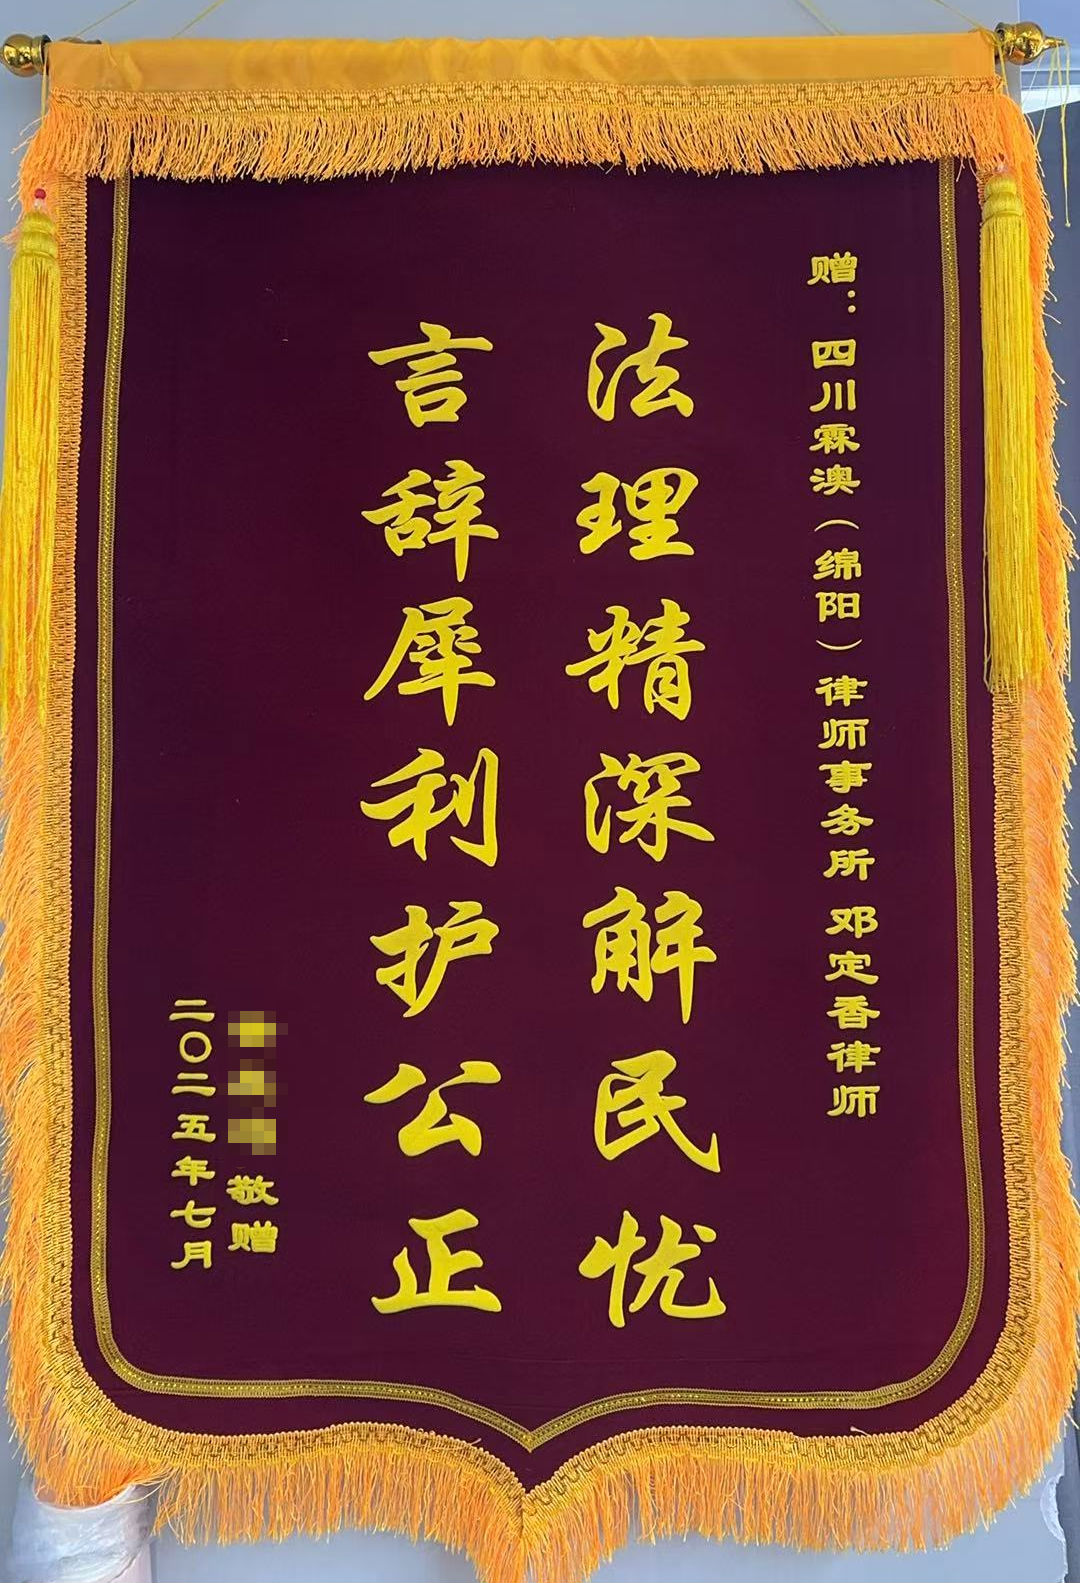 赠：四川霖澳（绵阳）律师事务所 邓定香律师
法理精深解民忧
言辞犀利护公正
敬赠
二〇二五年七月